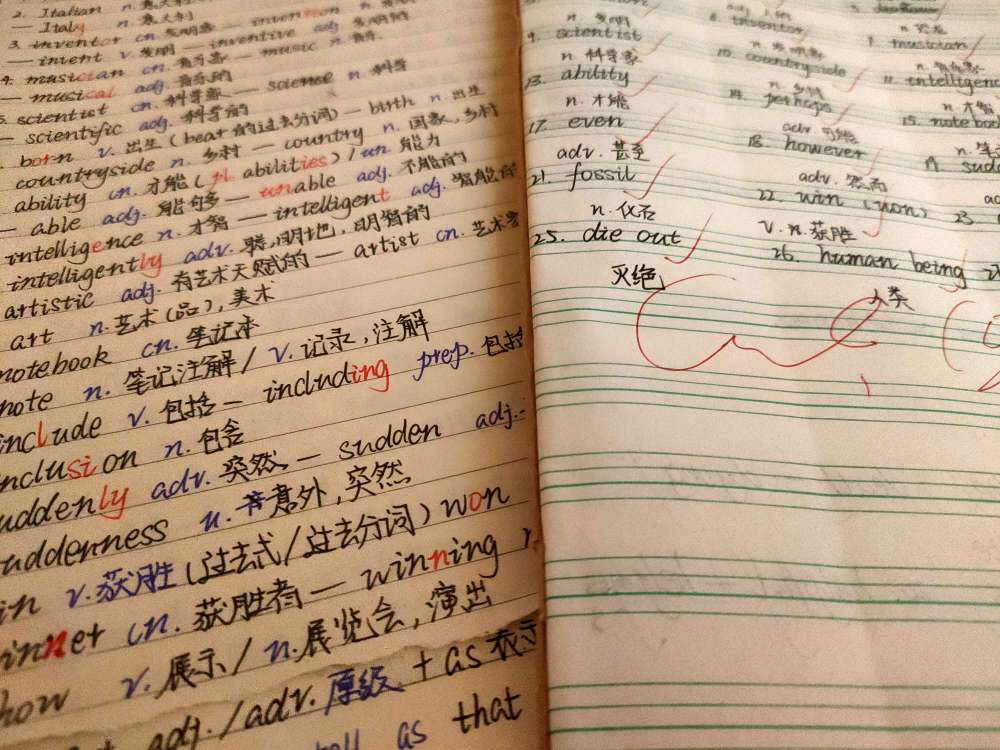 2. Italian n.
— Italy
3. inventor cn. 发明家 — invention n. 发明
— invent v. 发明 — inventive adj.
4. musician cn. 音乐家 — music n. 音乐
— musical adj. 音乐的
5. scientist cn. 科学家 — science n. 科学
— scientific adj. 科学的
born v. 出生 (bear的过去分词) — birth n. 出生
countryside n. 乡村 — country n. 国家, 乡村
ability cn. 才能 (pl. abilities) / un. 能力
— able adj. 能够的 — unable adj. 不能的
intelligence n. 才智 — intelligent adj.
intelligently adv. 聪明地, 明智的
artistic adj. 有艺术天赋的 — artist cn. 艺术家
art n. 艺术(品), 美术
notebook cn. 笔记本
note n. 笔记注解 / v. 记录, 注解
include v. 包括 — including prep. 包括
inclusion n. 包含
suddenly adv. 突然 — sudden adj.
suddenness n. 意外, 突然
in v. 获胜 (过去式/过去分词) won
inner cn. 获胜者 — winning
how v. 展示 / n. 展览会, 演出
adj./adv. 原级 + as 表示
as that
9. scientist
n. 科学家
10. countryside
n. 乡村
musician
11. intelligence
n. 才智
13. ability
n. 才能
14. perhaps
adv. 可能
15. notebook
17. even
adv. 甚至
18. however
adv. 然而
19. sudd
21. fossil
n. 化石
22. win (won)
v. n. 获胜
23
25. die out
灭绝
26. human being
人类